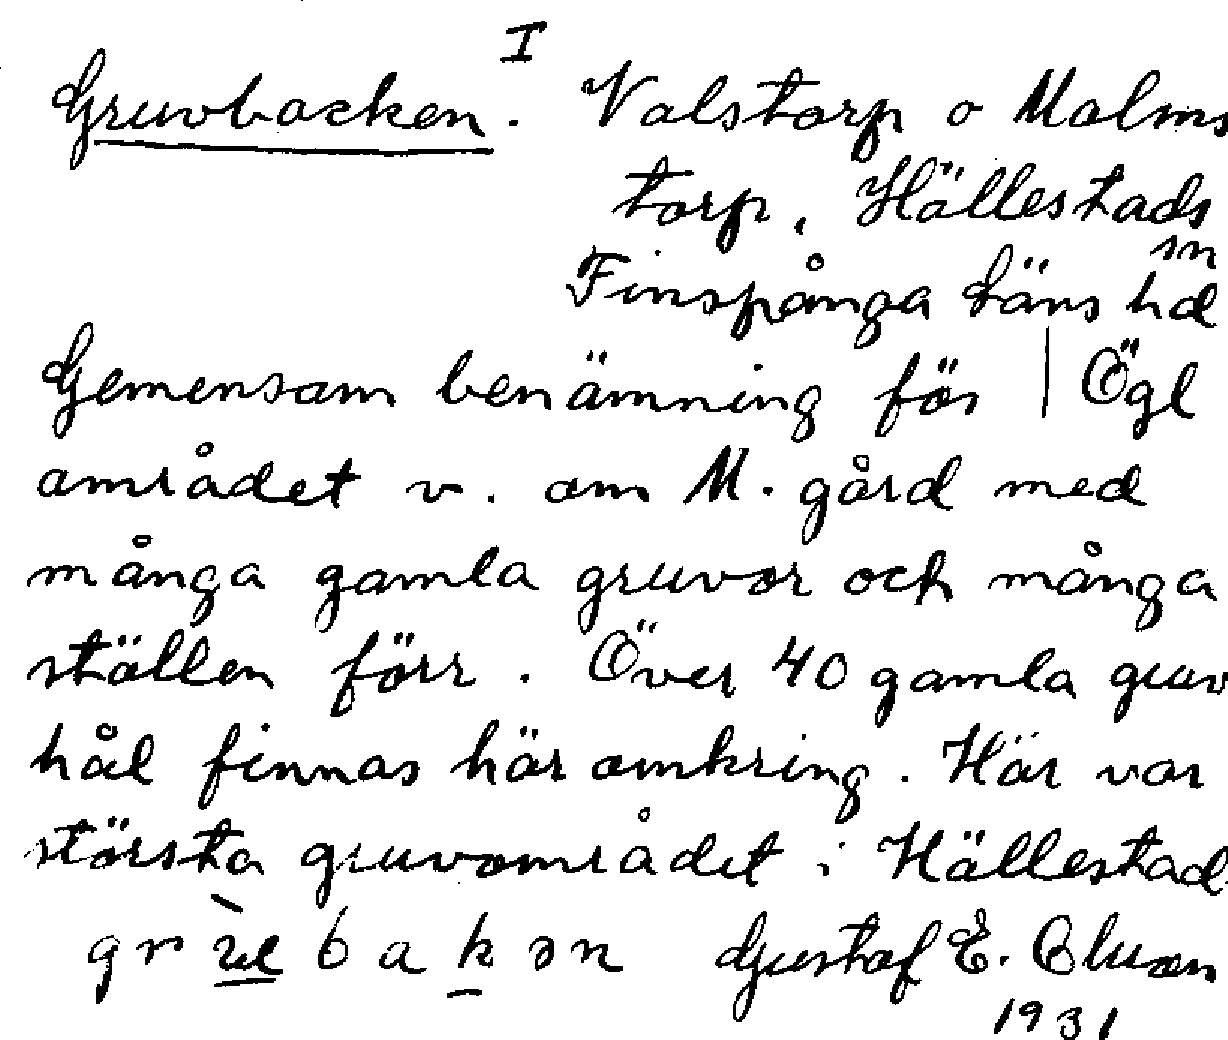 I
Gruvbacken. Valstorp o Malms
torp, Hällestads
sn
Finspånga Läns hd
Gemensam benämning för | Ögl
området v. om M. gård med
många gamla gruvor och många
ställen förr. Över 40 gamla gruv
hål finnas här omkring. Här var
största gruvområdet i Hällestad
bakən Gustaf E.
1931